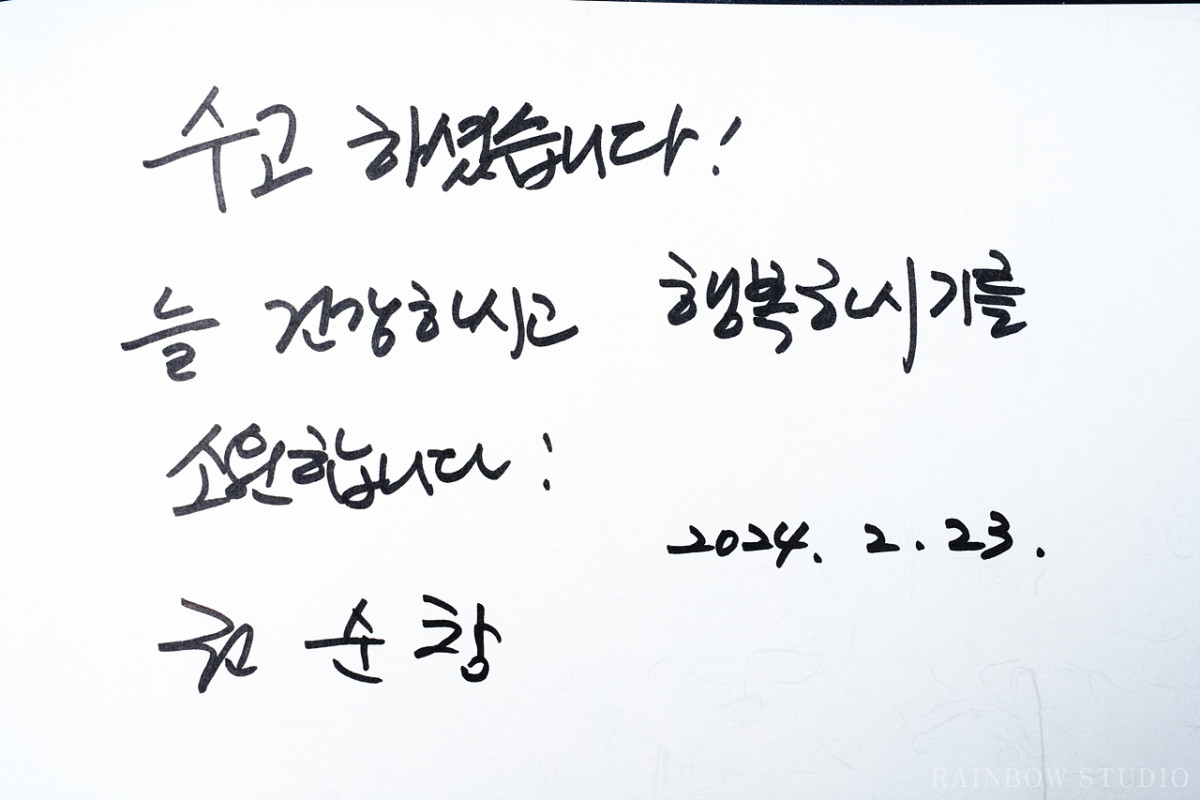 수고 하셨습니다!
늘 건강하시고 행복하시기를
소원합니다!
2024. 2. 23.
순창
RAINBOW STUDIO